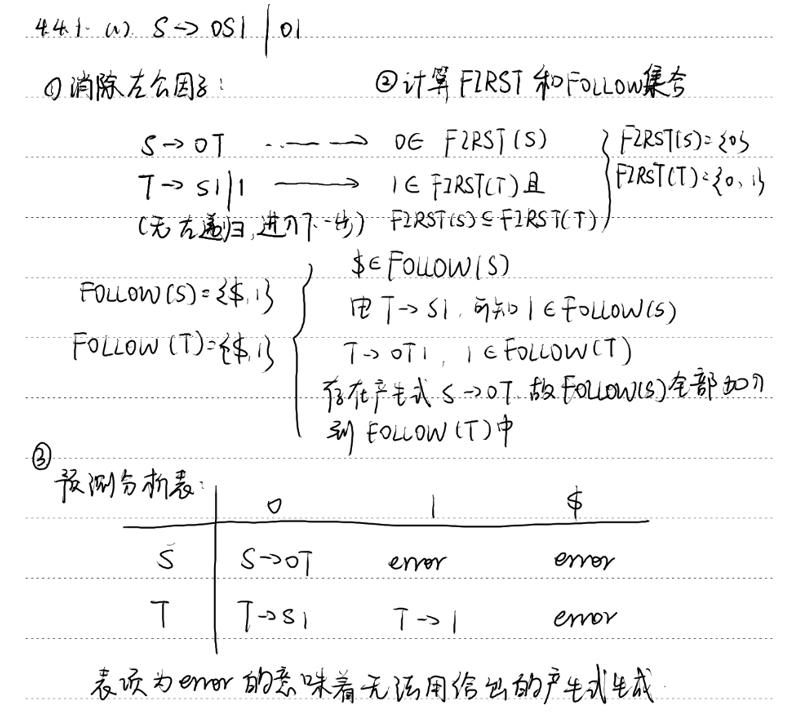 4.4.1. (1). S→0S1 | 01
① 消除左公因子:
② 计算FIRST和FOLLOW集合
S→0T ---→ 0∈FIRST(S)
T→S1|1 → 1∈FIRST(T)且
(无左递归,进入下一步) FIRST(S)⊆FIRST(T)
FIRST(S)={0}
FIRST(T)={0,1}
FOLLOW(S)={$,1}
FOLLOW(T)={$,1}
$∈FOLLOW(S)
由T→S1,可知1∈FOLLOW(S)
T→0T1, 1∈FOLLOW(T)
存在产生式S→0T,故FOLLOW(S)全部加入
到FOLLOW(T)中
③
预测分析表:
0 1 $
S S→0T error error
T T→S1 T→1 error
表项为error的意味着无法用给出的产生式生成.